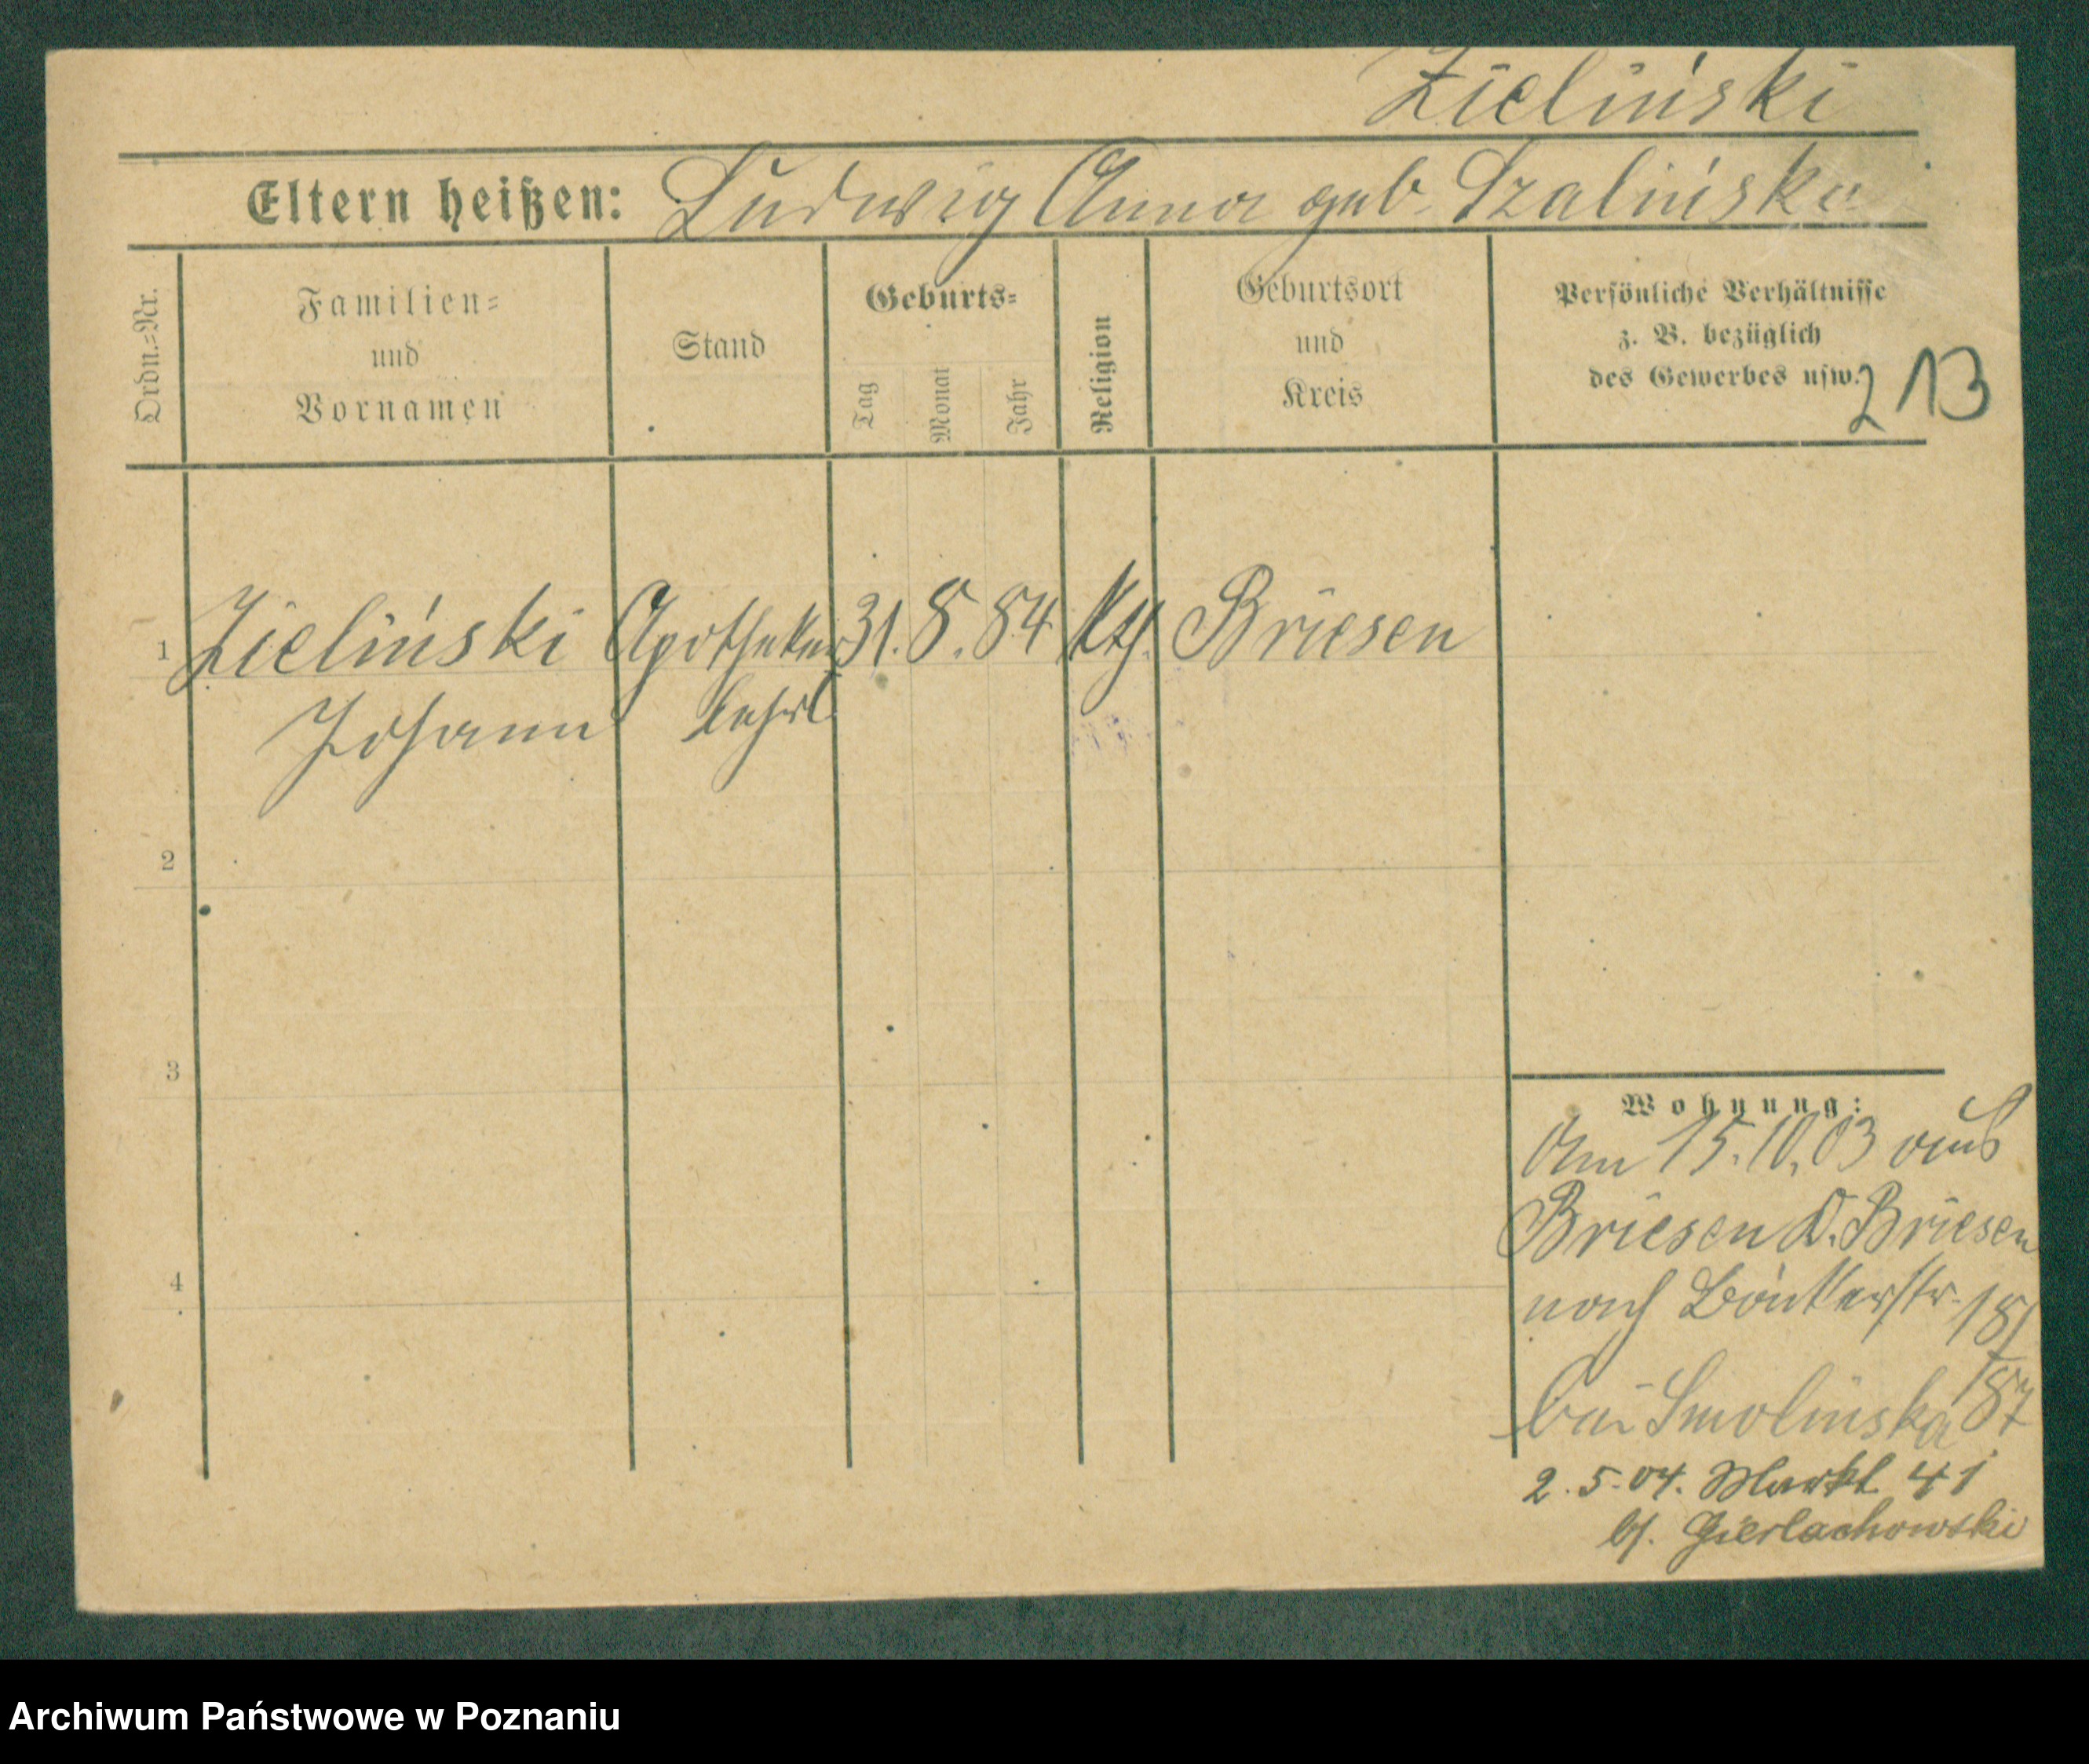 Zieliński
Eltern heißen: Ludwig Anna geb. Szalińska
Ordn.=Nr.
Familien=
und
Vornamen
Stand
Geburts=
Tag
Monat
Jahr
Religion
Geburtsort
und
Kreis
Persönliche Verhältnisse
z. B. bezüglich
des Gewerbes usw.
213
1 Zieliński Apotheker 31. 8. 84 kth. Briesen
Johann lehrl.
2
3
4
Wohnung:
Am 15.10.03 aus
Briesen Kr. Briesen
nach Bäckerstr. 181
187
bei Smolinska
2.5.04. Markt 41
bei Gierlachowski
Archiwum Państwowe w Poznaniu